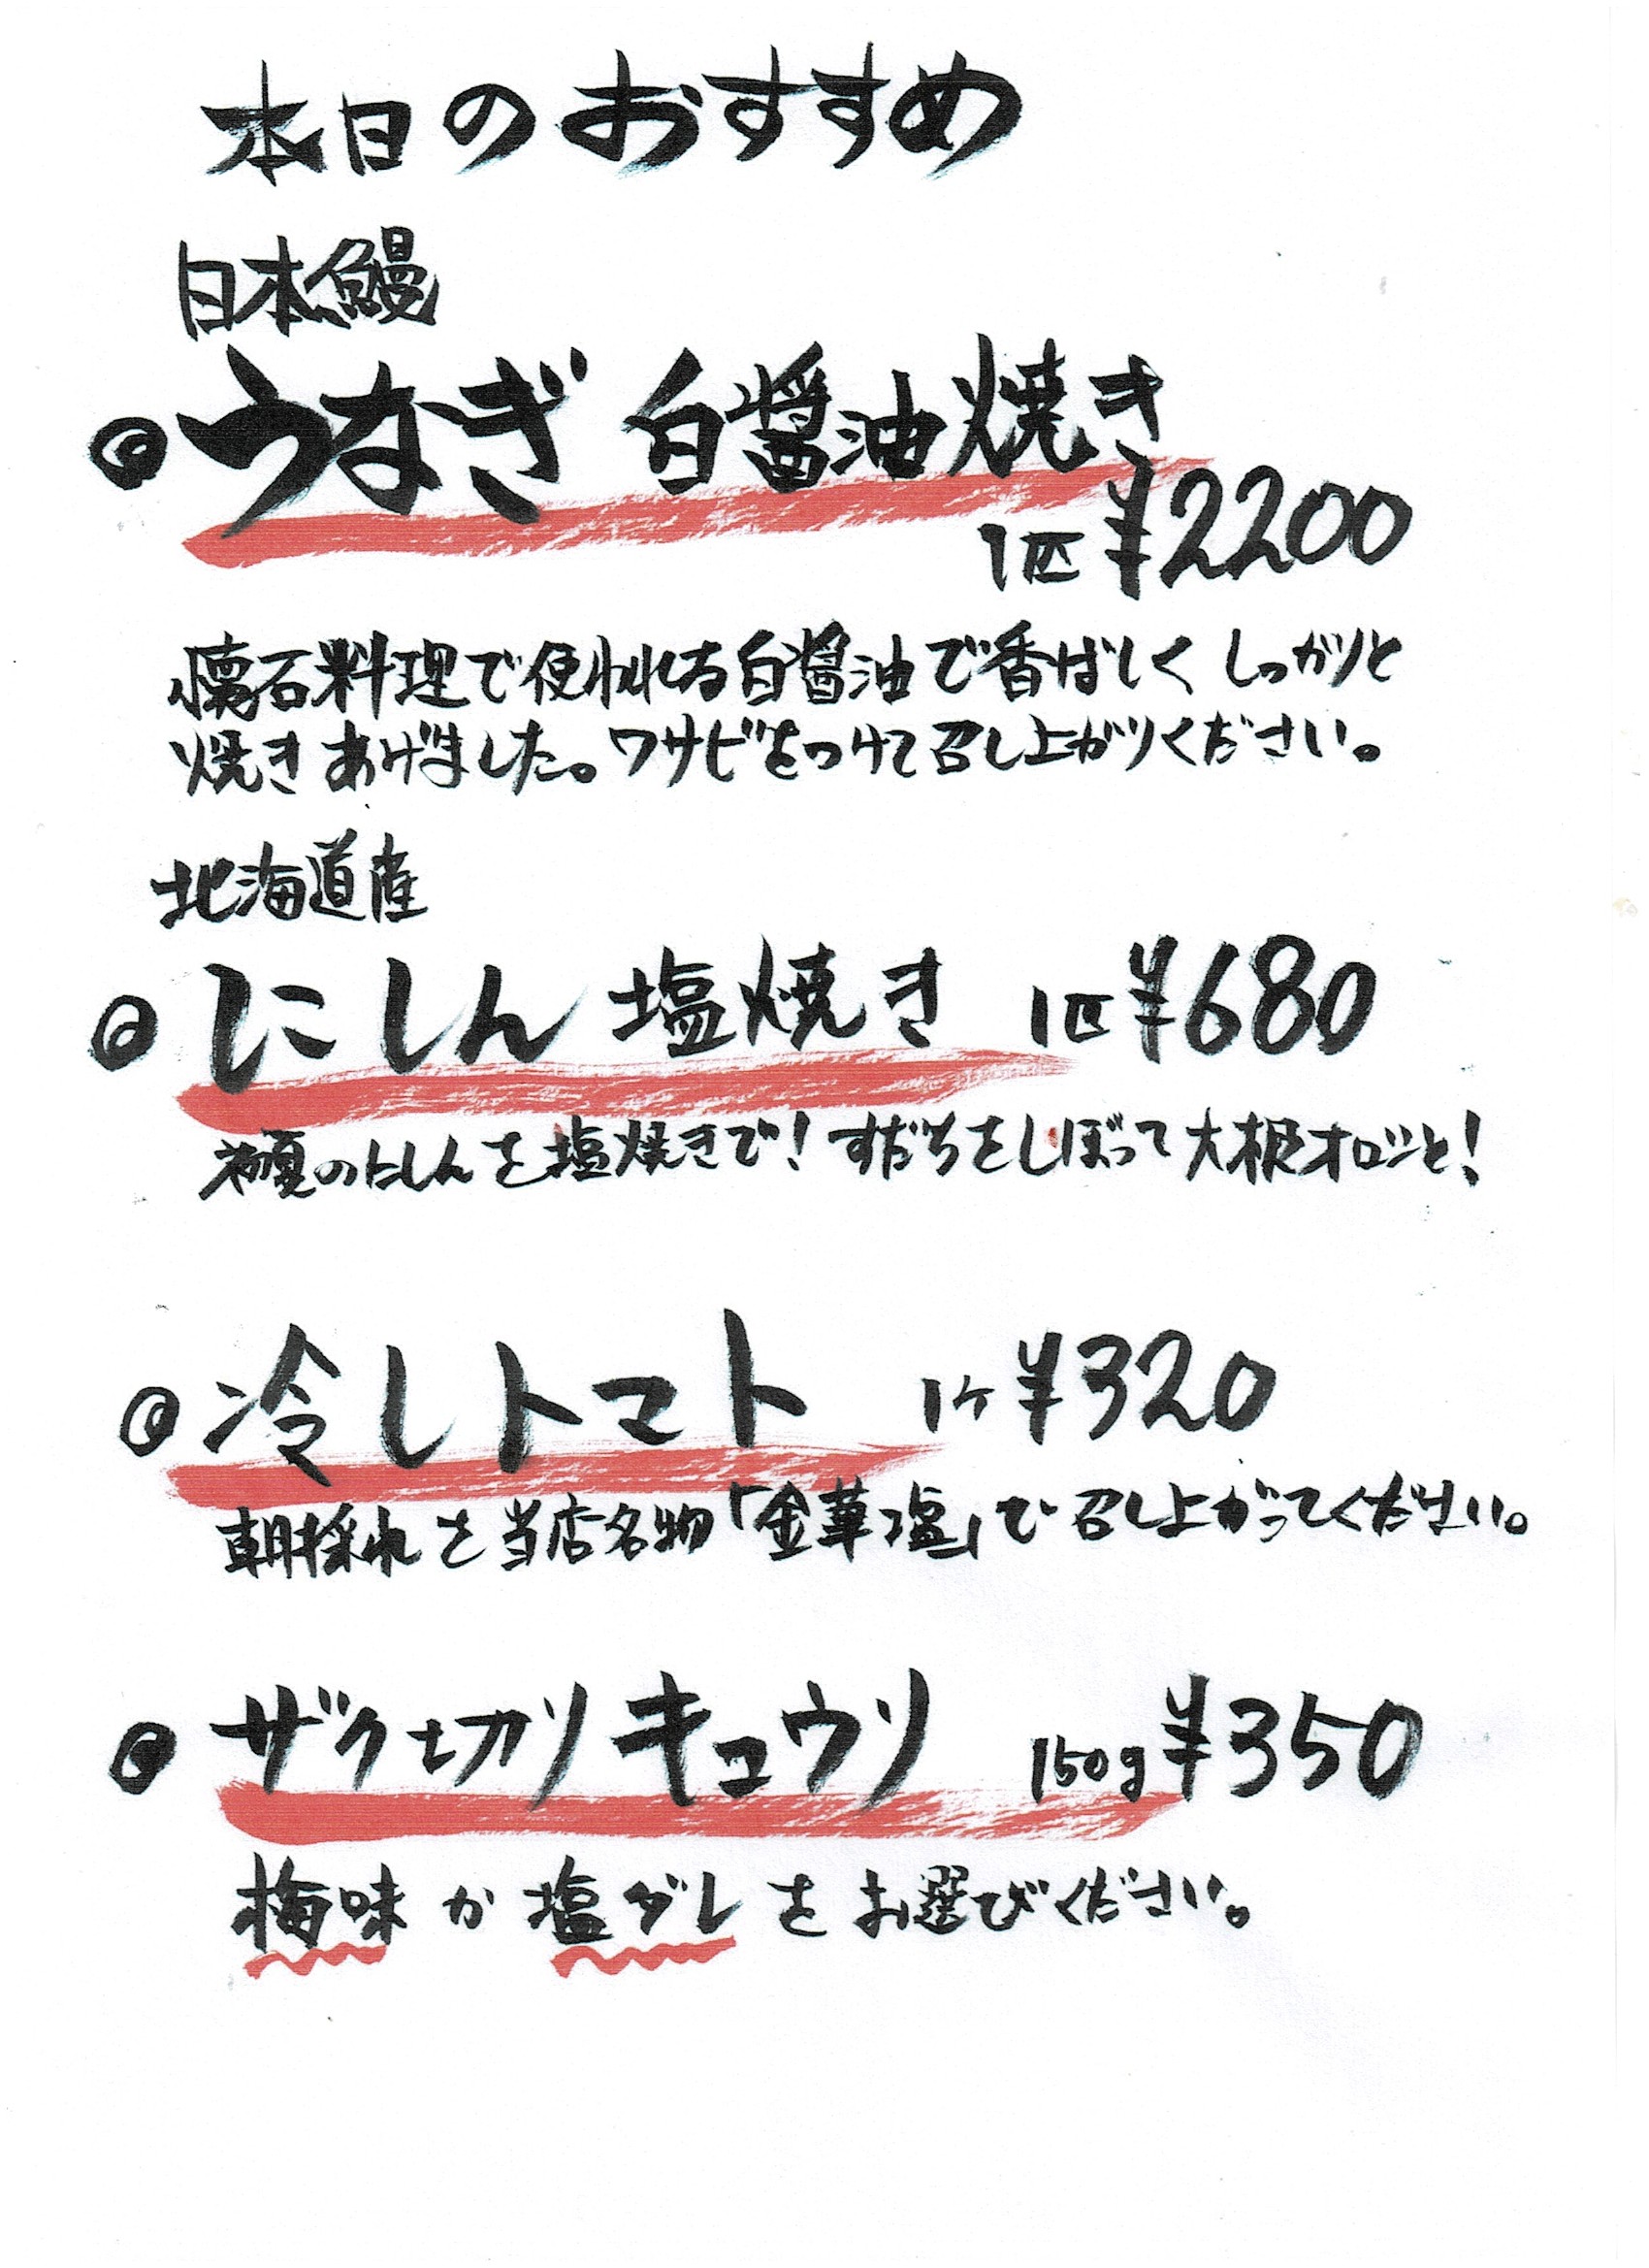 本日のおすすめ
日本鰻
◎うなぎ 白醤油焼き
1匹 ¥2200
懐石料理で使われる白醤油で香ばしく しっかりと
焼きあげました。ワサビをつけて召し上がりください。
北海道産
◎にしん 塩焼き 1匹 ¥680
初夏のにしんを塩焼きで！すだちをしぼって大根オロシと！
◎冷しトマト 1ケ ¥320
朝採れを当店名物「金華塩」で召し上がってください。
◎ザク切りキュウリ 150g ¥350
梅味か塩ダレをお選びください。